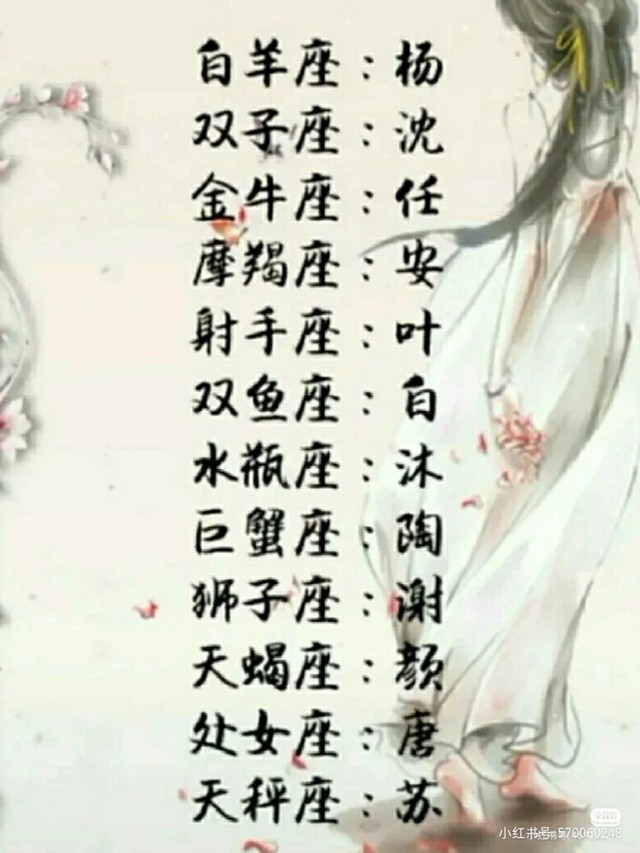 白羊座：杨
双子座：沈
金牛座：任
摩羯座：安
射手座：叶
双鱼座：白
水瓶座：沐
巨蟹座：陶
狮子座：谢
天蝎座：颜
处女座：唐
天秤座：苏
小红书号:570060248